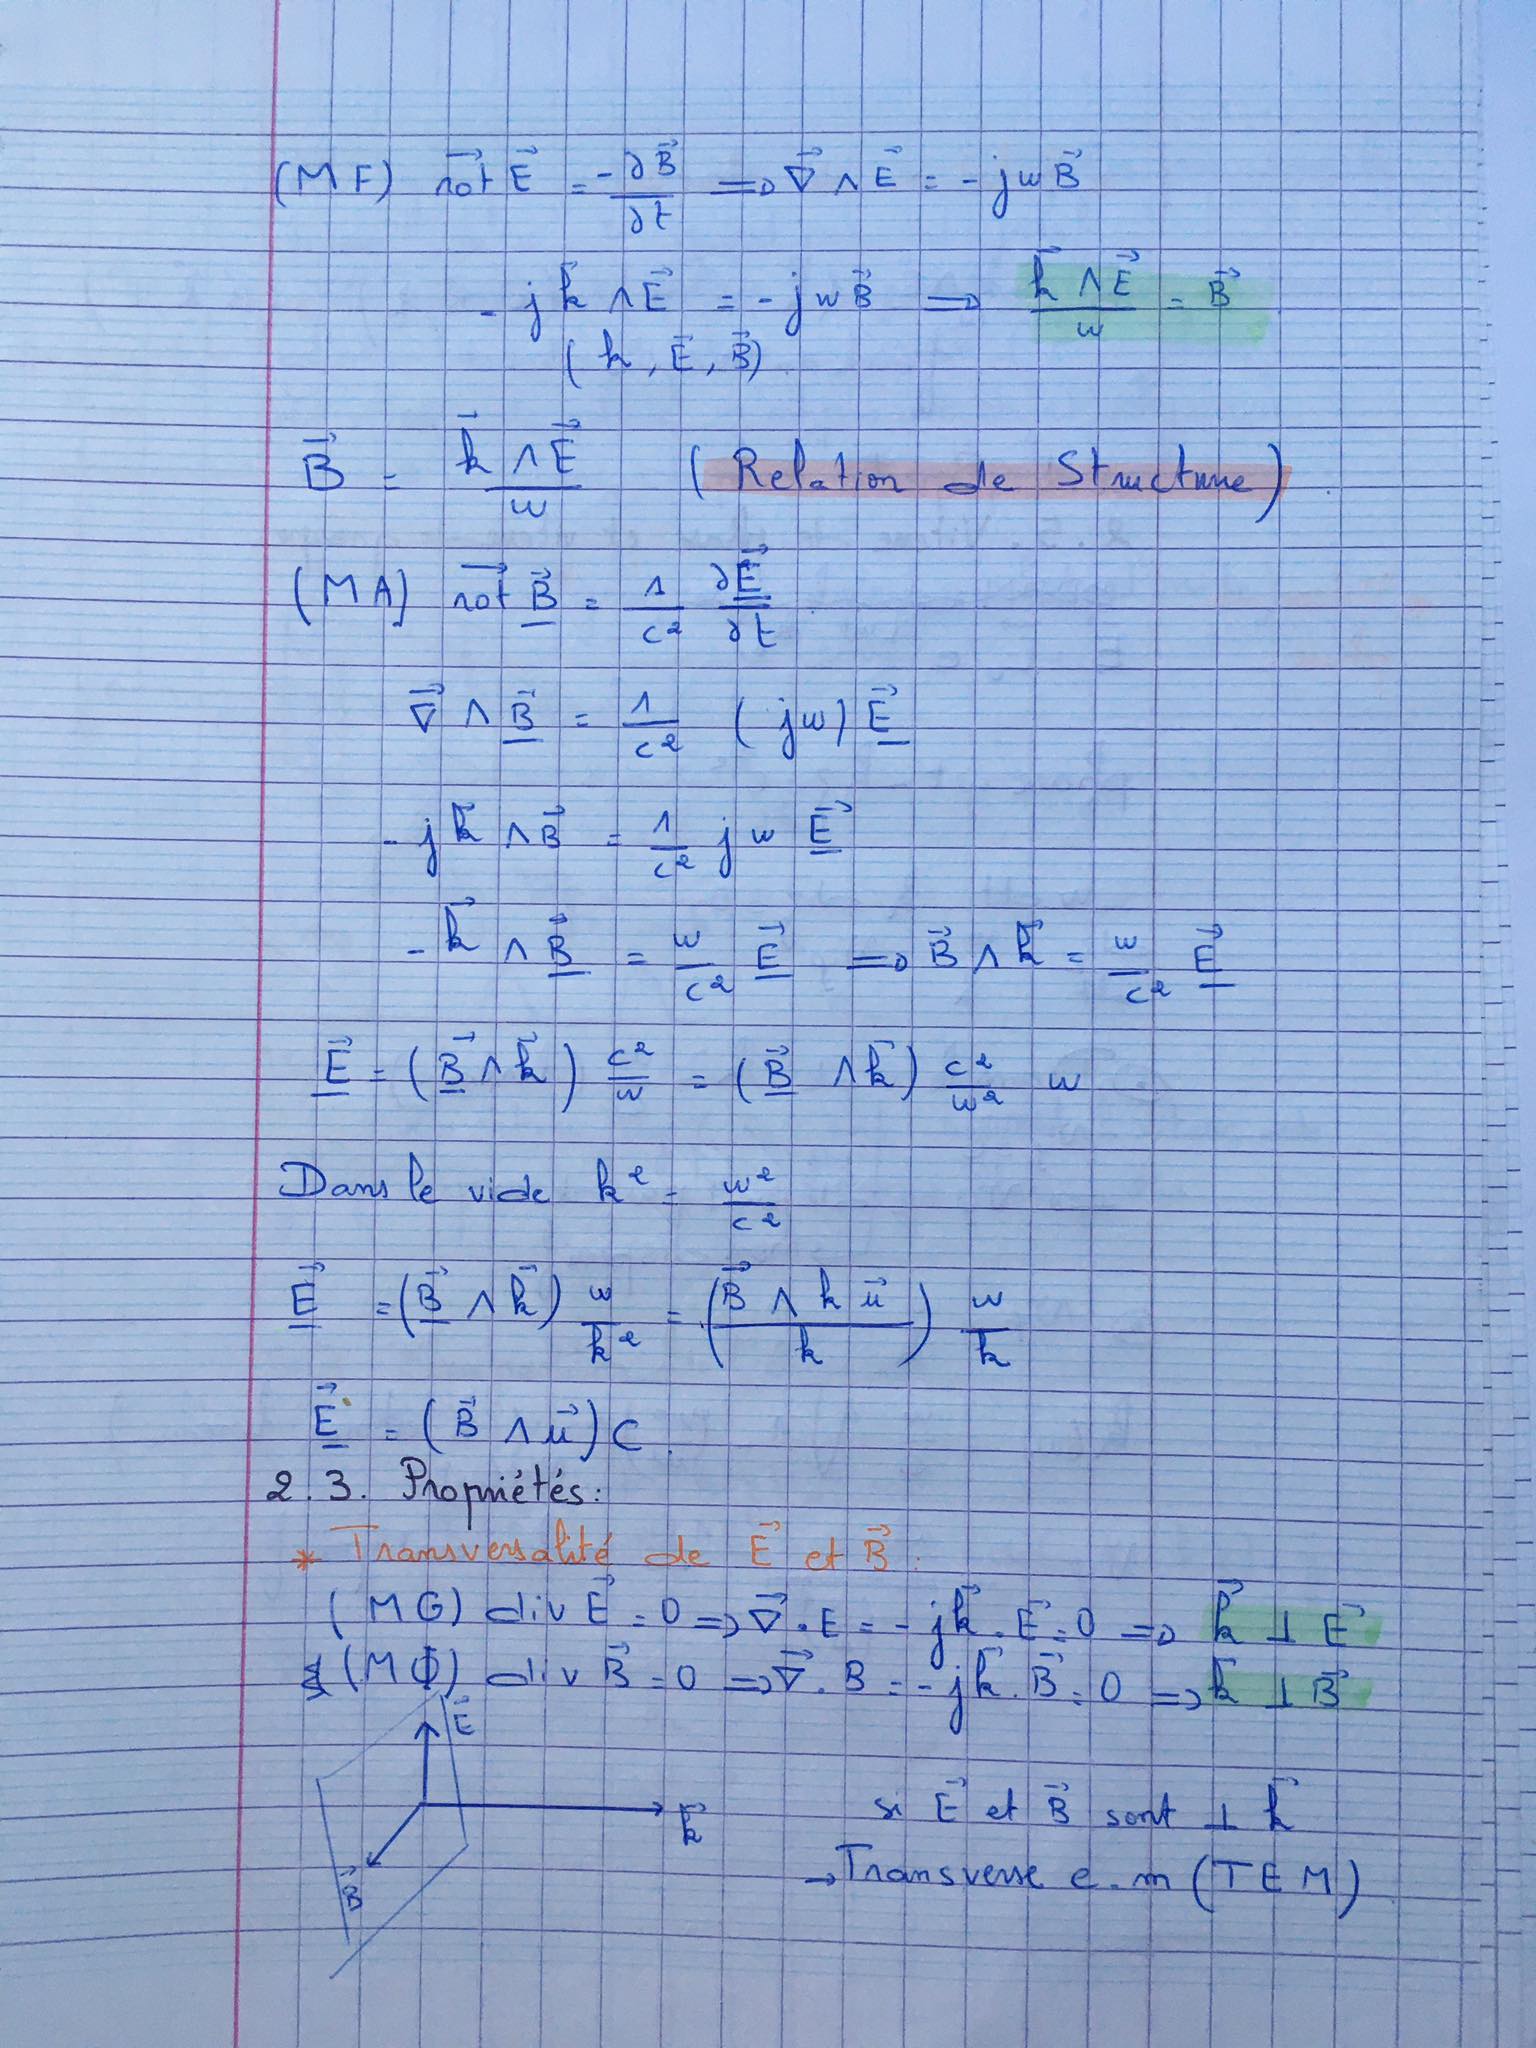 (MF) rot E⃗ = -∂B⃗/∂t => ∇⃗ ∧ E⃗ = -jwB⃗
-jk⃗ ∧ E⃗ = -jwB⃗ => k⃗ ∧ E⃗ / w = B⃗
(k, E⃗, B⃗)
B⃗ = k⃗ ∧ E⃗ / w (Relation de Structure)
(MA) rot B⃗ = 1/c² ∂E⃗/∂t
∇⃗ ∧ B⃗ = 1/c² (jw) E⃗
-jk⃗ ∧ B⃗ = 1/c² jw E⃗
-k⃗ ∧ B⃗ = w/c² E⃗ => B⃗ ∧ k⃗ = w/c² E⃗
E⃗ = (B⃗ ∧ k⃗) c²/w = (B⃗ ∧ k⃗) c²/w² w
Dans le vide k² = w²/c²
E⃗ = (B⃗ ∧ k⃗) w/k² = (B⃗ ∧ k u⃗ / k) w/k
E⃗ = (B⃗ ∧ u⃗) C.
2.3. Propriétés:
* Transversalité de E⃗ et B⃗.
(MG) div E⃗ = 0 => ∇⃗.E = -jk⃗.E⃗ = 0 => k⃗ ⊥ E⃗
(MΦ) div B⃗ = 0 => ∇⃗.B = -jk⃗.B⃗ = 0 => k⃗ ⊥ B⃗
E⃗
k⃗
B⃗
si E⃗ et B⃗ sont ⊥ k⃗
→ Transverse e.m (TEM)